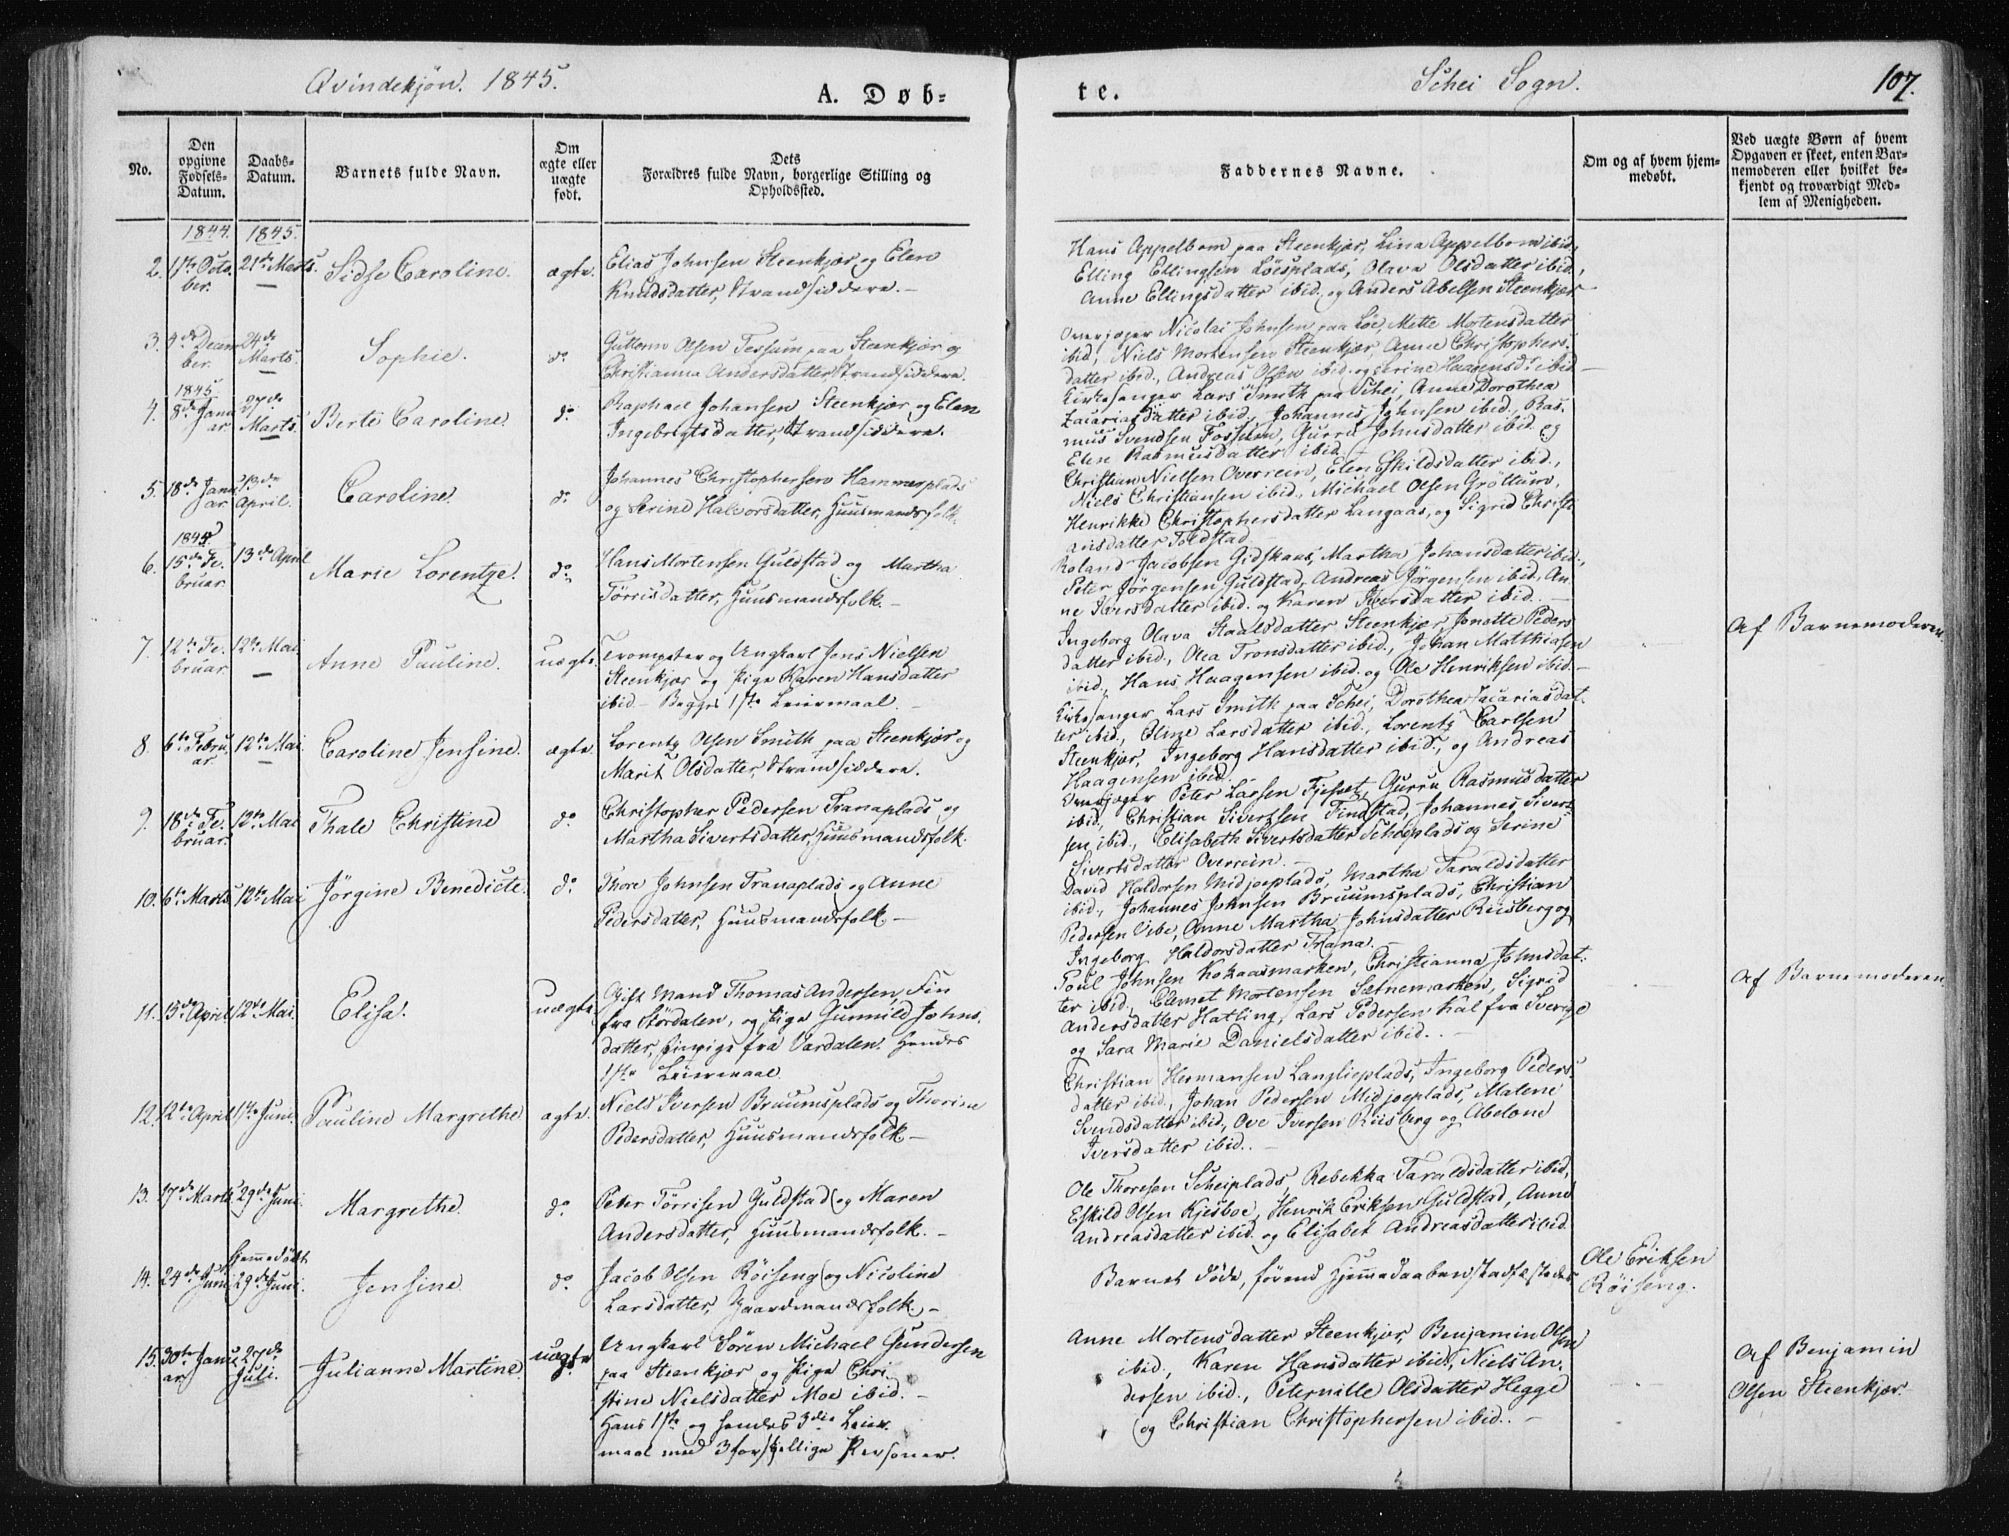 Qvindekjøn. 1845.
A. Døb-
te.
Schei Sogn.
107.
No.
Den opgivne Fødsels-Datum.
Daabs-Datum.
Barnets fulde Navn.
Om ægte eller uægte født.
Dets Forældres fulde Navn, borgerlige Stilling og Opholdssted.
Faddernes Navne.
Om og af hvem hjemmedøbt.
Ved uægte Børn af hvem Opgaven er skeet, enten Barnemoderen eller hvilket bekjendt og troværdigt Medlem af Menigheden.
1844. 1845.
2. 11te Octo- 21de Marts. Sidse Caroline. ægte. Elias Johnsen Steenkjær og Elen
ber. Knudsdatter, Strandsiddere. –
Hans Appelbom paa Steenkjær, Lina Appelbom ibid.,
Elling Ellingsen Löesplads, Olava Olsdatter ibid.,
Anne Ellingsdatter ibid. og Anders Abelsen Steenkjær
3. 4de Decem- 24de Sophie. do Guttorm Olsen Tessum paa Steenkjær og
ber. Marts. Christianna Andersdatter Strandsiddere.
Overjæger Nicolai Johnsen paa Löe, Mette Mortensdatter
ibid., Niels Mortensen Steenkjær, Anne Christophers-
datter ibid., Andreas Olsen ibid. og Serine Haagensdr ibid
1845
4. 8de Janu- 27de Berte Caroline. do Raphael Johansen Steenkjær og Elen
ar. Marts. Ingebrigtsdatter, Strandsiddere.
Kirkesanger Lars Smith paa Schei, Anne Dorothea
Zacariasdatter ibid., Johannes Johnsen ibid., Ras-
mus Svendsen Fossum, Gurru Johnsdatter ibid. og
Elen Rasmusdatter ibid.
5. 18de Janu- 13de Caroline. do Johannes Christophersen Hammerplads
ar. April. og Serine Halvorsdatter, Huusmandsfolk.
Christian Nielsen Overrein, Elen Eskildsdatter ibid.,
Niels Christiansen ibid., Michael Olsen Gröttum,
Henrikke Christophersdatter Langaas, og Sigrid Christi
ansdatter Toldstad.
6. 15de Fe- 13de April Marie Lorentze. do Hans Mortensen Guldstad og Martha
bruar. Törrisdatter, Huusmandsfolk. –
Roland Jacobsen Gidskaas, Martha Johansdatter ibid.,
Peter Jørgensen Guldstad, Andreas Jørgensen ibid., An-
ne Iversdatter ibid. og Karen Iversdatter ibid.
7. 12te Fe- 12te Mai Anne Pauline. uægte. Trompeter og Ungkarl Jens Nielsen
bruar. Steenkjær og Pige Karen Hansdatter
ibid. – Begges 1ste Leiermaal.
Ingeborg Olava Staalsdatter Steenkjær, Jonette Peders
datter ibid., Olea Tronsdatter ibid., Johan Matthiasen
ibid., Hans Haagensen ibid. og Ole Henriksen ibid. –
Af Barnemoderen
8. 6te Febru- 12te Mai Caroline Jensine. ægte. Lorentz Olsen Smith paa Steenkjær og
ar. Marit Olsdatter, Strandsiddere.
Kirkesanger Lars Smith paa Schei, Dorothea Zacariasdat-
ter ibid., Eline Larsdatter ibid., Lorentz Carlsen
Steenkjær, Ingeborg Hansdatter ibid., og Andreas
Haagensen ibid.
9. 18de Fe- 12te Mai Thale Christine do Christopher Pedersen Tranaplads og
bruar. Martha Sivertsdatter, Huusmandsfolk.
Overjæger Peter Larsen, Gurru Rasmusdatter
ibid., Christian Sivertsen Findstad, Johannes Sivert-
sen ibid., Elisabeth Sivertsdatter Scheiplads og Serine
Sivertsdatter Overrein. –
10. 6te Marts 12te Mai Jörgine Benedicte. do Thore Johnsen Tranaplads og Anne
Pedersdatter, Huusmandsfolk. –
David Haldorsen Midjoeplads, Martha Taraldsdatter
ibid., Johannes Johnsen Bruumsplads, Christian
Pedersen Vibe, Anne Martha Johnsdatter Riisberg og
Ingeborg Haldorsdatter Trana.
11. 15de April 12te Mai. Elisa. uægte. Gift Mand Thomas Andersen, Fin
fra Størdalen, og Pige Gunnild Johns-
datter, Finpige fra Værdalen. Hendes
1ste Leiermaal.
Poul Johnsen Kokaasmarken, Christianna Johnsdat-
ter ibid., Clemet Mortensen Sætnemarken, Sigrid
Andersdatter Hatling, Lars Pedersen Kal fra Sverige
og Sara Marie Danielsdatter ibid. –
Af Barnemoderen.
12. 12te April 1ste Juni. Pauline Margrethe ægte. Niels Iversen Bruumsplads og Thorine
Pedersdatter, Huusmandsfolk –
Christian Hermansen Langlieplads, Ingeborg Peders-
datter ibid., Johan Pedersen Midjoeplads, Malene
Svendsdatter ibid., Ove Iversen Riisberg og Abelone
Iversdatter ibid. –
13. 17de Marts 29de Juni. Margrethe. do Peter Törrisen Guldstad og Maren
Andersdatter, Huusmandsfolk. –
Ole Thoresen Scheiplads, Rebekka Taraldsdatter ibid,
Eskild Olsen Kjesboe, Henrik Eriksen Guldstad, Anne
Andreasdatter ibid. og Elisabet Andreasdatter ibid.
Hjemmedöbt
14. 24de Juni 29de Juni. Jensine do Jacob Olsen Röiseng og Nicoline
Larsdatter, Gaardmandsfolk. –
Barnet døde, førend Hjemmedaaben stadfæstedes
Ole Eriksen
Röiseng.
15. 30te Janu- 27de Julianne Martine. uægte Ungkarl Sören Michael Gundersen
ar Juli. paa Steenkjær og Pige Chri-
stine Nielsdatter Moe ibid. –
Hans 1ste og hendes 3die Leier-
maal med 3 forskjellige Personer.
Anne Mortensdatter Steenkjær, Benjamin Olsen
ibid., Karen Hansdatter ibid., Niels An-
dersen ibid., Peternille Olsdatter Hegge
og Christian Christophersen ibid. –
Af Benjamin
Olsen Steenkjær.